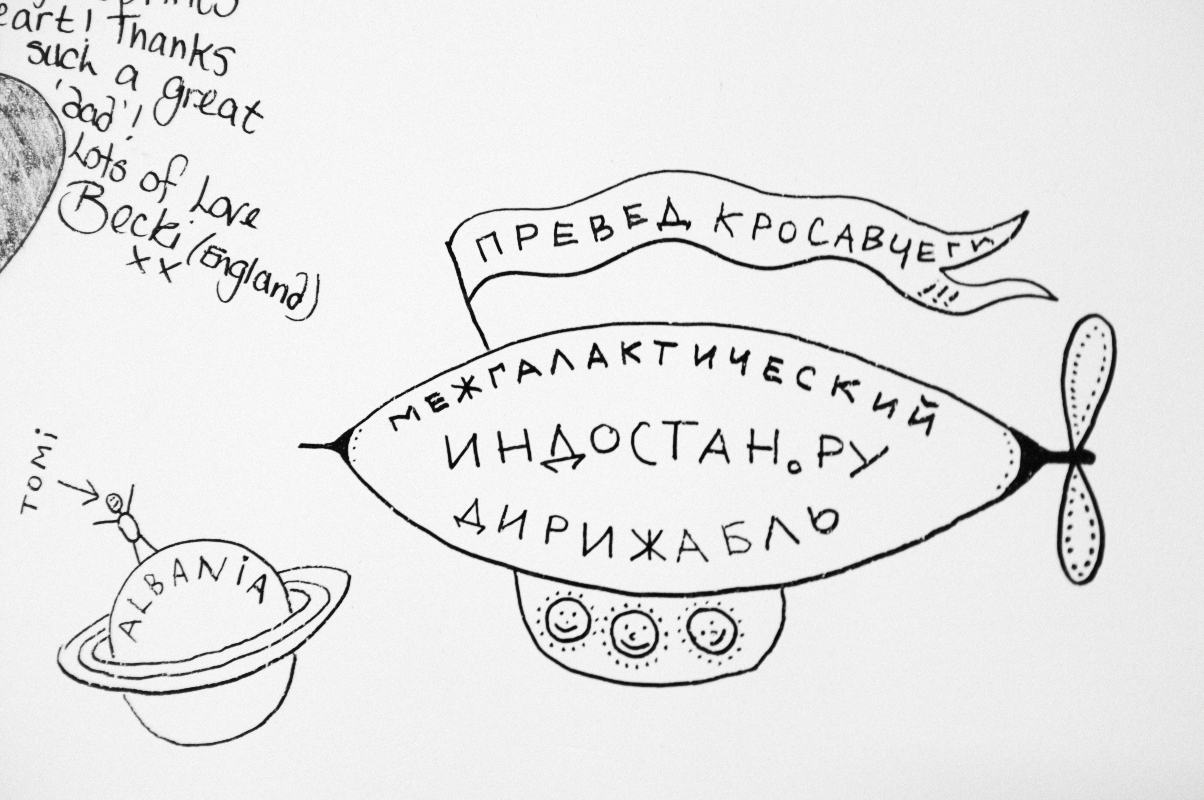 eart! Thanks
such a great
'dad'!
Lots of Love
Becki (England)
xx
ПРЕВЕД КРОСАВЧЕГГ
!!!
МЕЖГАЛАКТИЧЕСКИЙ
ИНДОСТАН.РУ
ДИРИЖАБЛЬ
TOMi
ALBANiA